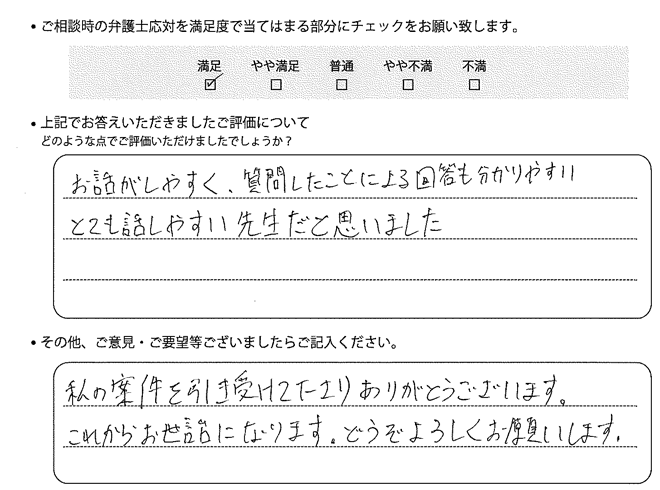 • ご相談時の弁護士応対を満足度で当てはまる部分にチェックをお願い致します。
満足 やや満足 普通 やや不満 不満
☑ ☐ ☐ ☐ ☐
• 上記でお答えいただきましたご評価について
どのような点でご評価いただけましたでしょうか？
お話がしやすく、質問したことによる回答も分かりやすい
とても話しやすい先生だと思いました
• その他、ご意見・ご要望等ございましたらご記入ください。
私の案件を引き受けてたさりありがとうございます。
これからお世話になります。どうぞよろしくお願いします.